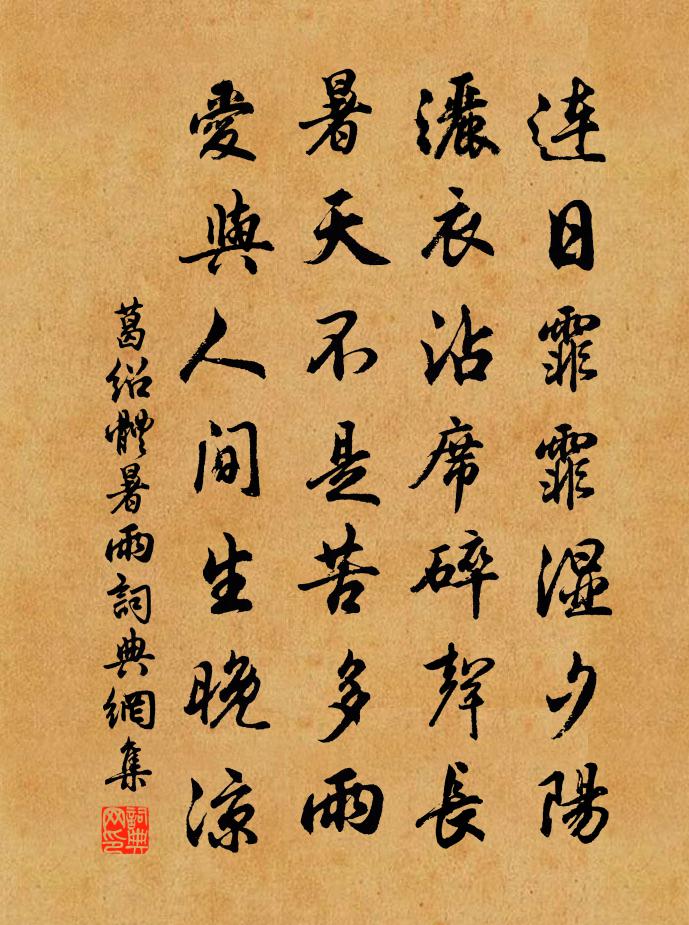 连日霏霏湿夕陽
灑衣沾席碎聲長
暑天不是苦多雨
愛與人间生晚凉
葛绍體暑雨詞典網集
詞典网印